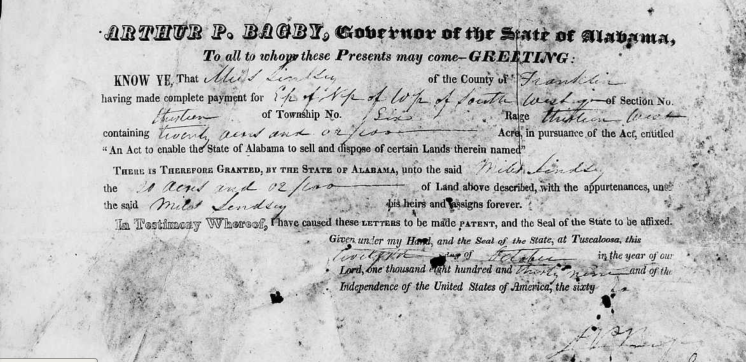 ARTHUR P. BAGBY, Governor of the State of Alabama,
To all to whom these Presents may come—GREETING:
KNOW YE, That Miles Lindsey of the County of Franklin
having made complete payment for E p of N p of W p of South West qr of Section No.
thirteen of Township No. Six Range thirteen West
containing twenty acres and 02/100 Acre, in pursuance of the Act, entitled
"An Act to enable the State of Alabama to sell and dispose of certain Lands therein named"
THERE IS THEREFORE GRANTED, BY THE STATE OF ALABAMA, unto the said Miles Lindsey
the 20 acres and 02/100 of Land above described, with the appurtenances, unto
the said Miles Lindsey his heirs and assigns forever.
In Testimony Whereof, I have caused these LETTERS to be made PATENT, and the Seal of the State to be affixed.
Given under my Hand, and the Seal of the State, at Tuscaloosa, this
of October in the year of our
Lord, one thousand eight hundred and thirty nine and of the
Independence of the United States of America, the sixty